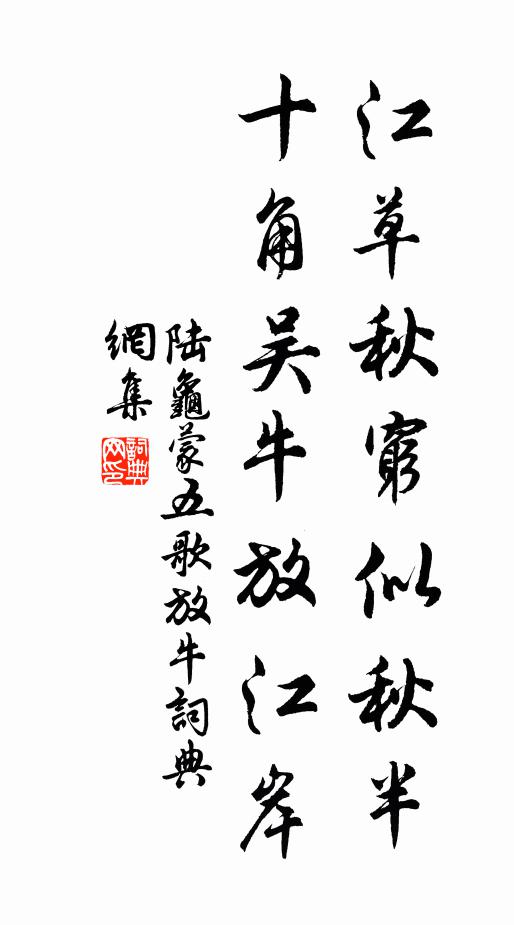 江草秋窮似秋半
十角吴牛放江岸
陆龜蒙五歌放牛詞典
網集
詞典网印